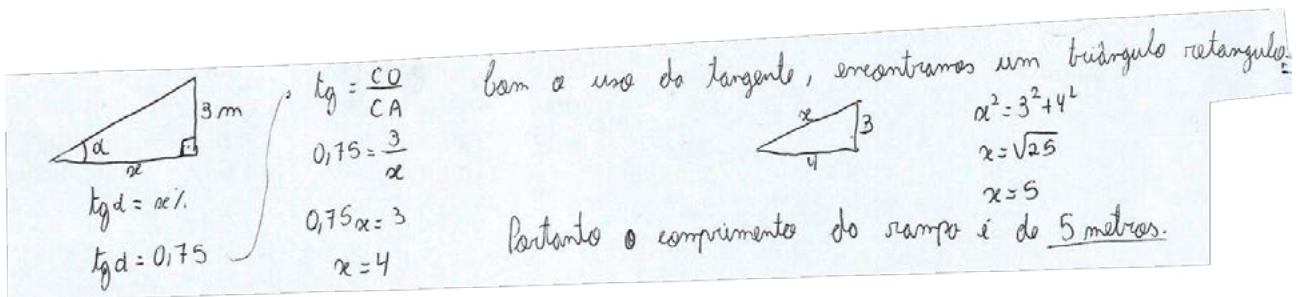 3 m
α
x
tg α = x%
tg α = 0,75
tg = CO/CA
0,75 = 3/x
0,75x = 3
x = 4
Com o uso da tangente, encontramos um triângulo retangulo:
x
3
4
x² = 3² + 4²
x = √25
x = 5
Portanto o comprimento da rampa é de 5 metros.